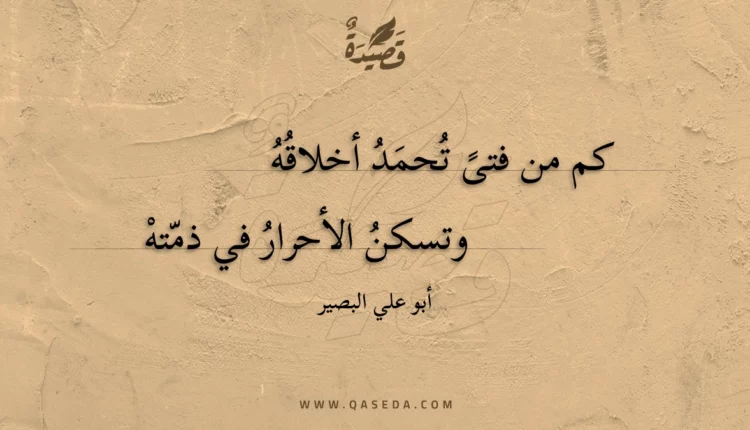 قَصِيْدَةٌ
كم من فتىً تُحمَدُ أخلاقُهُ
وتسكنُ الأحرارُ في ذمّتهْ
أبو علي البصير
WWW.QASEDA.COM